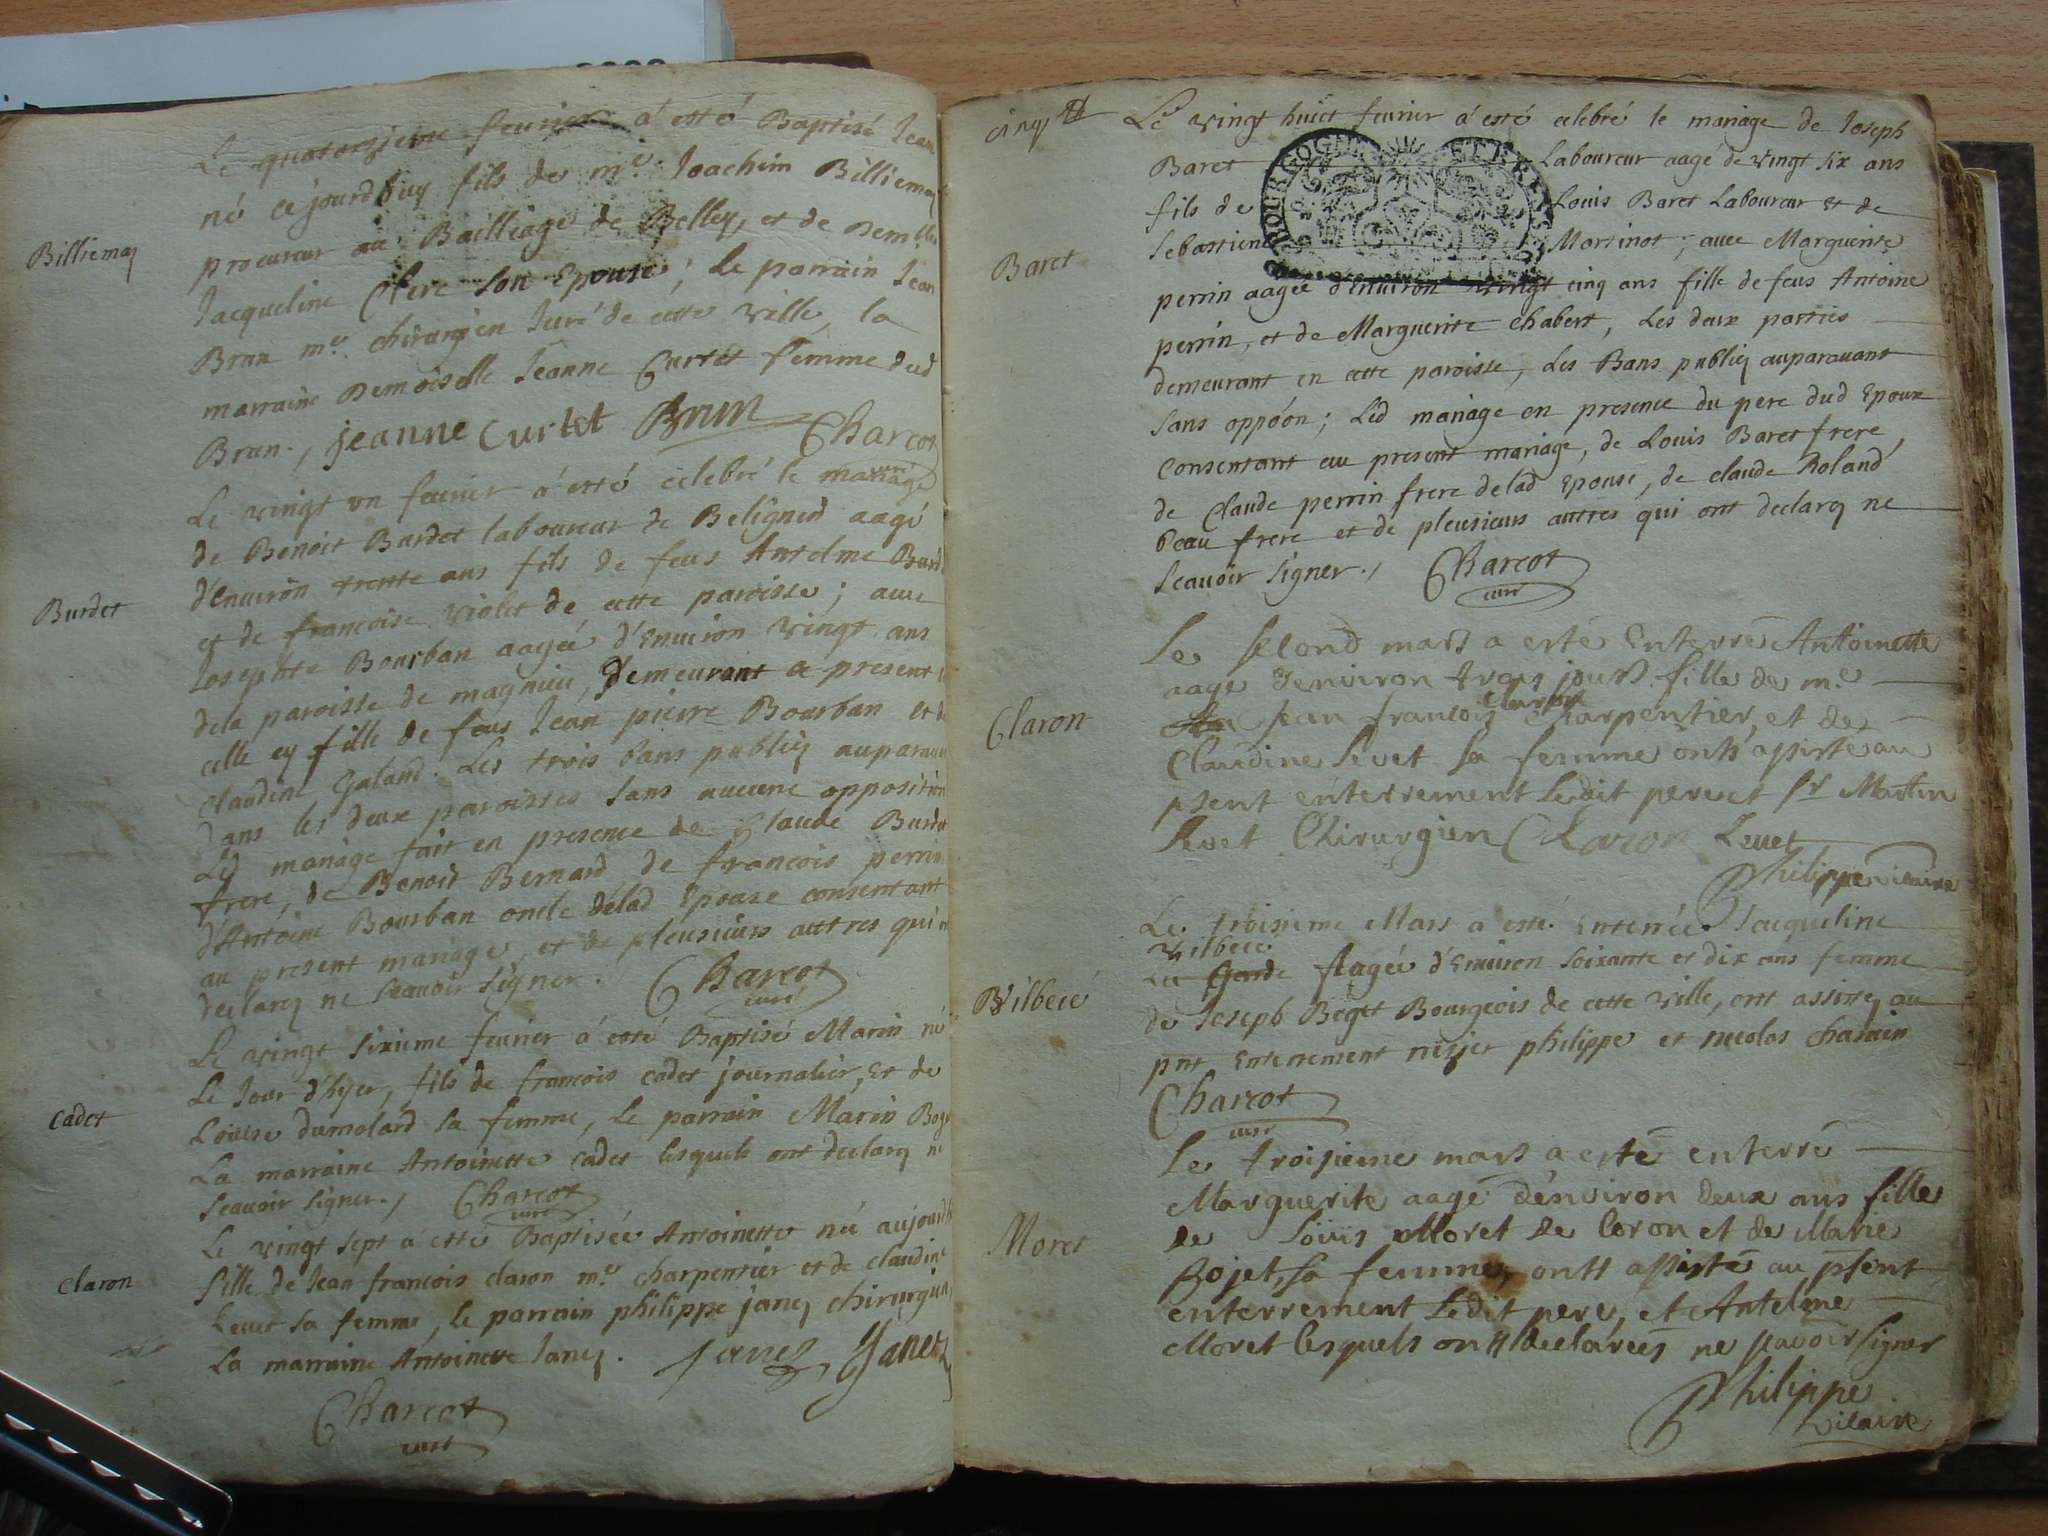 Billiemaz
Le quatorzieme fevrier a esté Baptisé Jean
né cejourdhuy fils de me. Joachim Billiemaz
procureur au Bailliage de Belley, et de Demlle
Jacqueline Clerc son Epouse; Le parrain Jean
Brun me. chirurgien Juré de cette ville, la
marraine Demoiselle Jeanne Curtet femme dud
Brun., jeanne Curtet Brun Charcot
curé
Burdet
Le vingt un fevrier a esté celebré le mariage
de Benoit Burdet laboureur de Beligneu aagé
d'Environ trente ans fils de feus Antelme Burdet
et de francoise violet de cette paroisse; avec
Josephte Bourban aagée d'Environ vingt ans
dela paroisse de magnieu, demeurant a present
celle cy fille de feus Jean pierre Bourban et de
Claudine Galand. Les trois bans publiez auparavant
dans les deux paroisses sans aucune opposition
Led mariage fait en presence de Claude Burdet
frere, de Benoit Bernard de francois perrin
d'Antoine Bourban oncle delad Epouse consentant
au present mariage, et de pleusieurs auttres qui
declarez ne scavoir signer. Charcot
curé
Cadet
Le vingt sixieme fevrier a esté Baptisé Marin né
Le Jour d'hyer, fils de francois cadet journalier, Et de
Louise dumolard sa femme, Le parrain Marin
La marraine Antoinette cadet lesquels ont declarez ne
scavoir signer., Charcot
curé
Claron
Le vingt sept a esté Baptisée Antoinette née aujourdh
fille de Jean francois claron me. charpentier et de claudine
Levet sa femme, le parrain philippe janez chirurgien,
La marraine Antoinette Janez. Janez, Janez
Charcot
curé
cinq
Le vingt huict fevrier a esté celebré le mariage de Joseph
Baret Laboureur aagé de vingt six ans
BOURGOGNE ET BRESSE
fils de Louis Baret Laboureur Et de
Baret
Sebastiene Martinot; avec Marguerite
perrin aagée d'Environ vingt cinq ans fille de feus Antoine
perrin, et de Marguerite Chabert, Les deux parties
demeurant en cette paroisse, Les Bans publiez auparavant
sans oppôon; Led mariage en presence du pere dud Epoux
Consentant au present mariage, de Louis Baret frere,
de Claude perrin frere delad Epouse, de claude Roland
beau frere et de pleusieurs autres qui ont declarez ne
scavoir signer., Charcot
curé
Le second mars a esté Enterré Antoinette
aage denviron trois jours fille de me.
Claron
Claron
Jean francois charpentier, et de
Claudine Levet sa femme onts assisté au
psent enterrement ledit pere et Sr Martin
Levet Chirurgien Claron Levet
Philippe vicaire
Le troisieme Mars a esté Enterrée Jacqueline
Wilbecé
Wilbecé
La Garde aagée d'Environ soixante et dix ans femme
de Joseph Beget Bourgeois de cette ville, ont assistez au
pnt Enterrement philippe et nicolas
Charcot
curé
Moret
Le troisieme mars a esté enterré
Marguerite aagé d'environ deux ans fille
de Louis Moret de Coron et de Marie
Bojet, sa femme, ontt assisté au psent
enterrement ledit pere, et Antelme
Moret lesquels ontt declarees ne scavoir signer
Philippe
vicaire